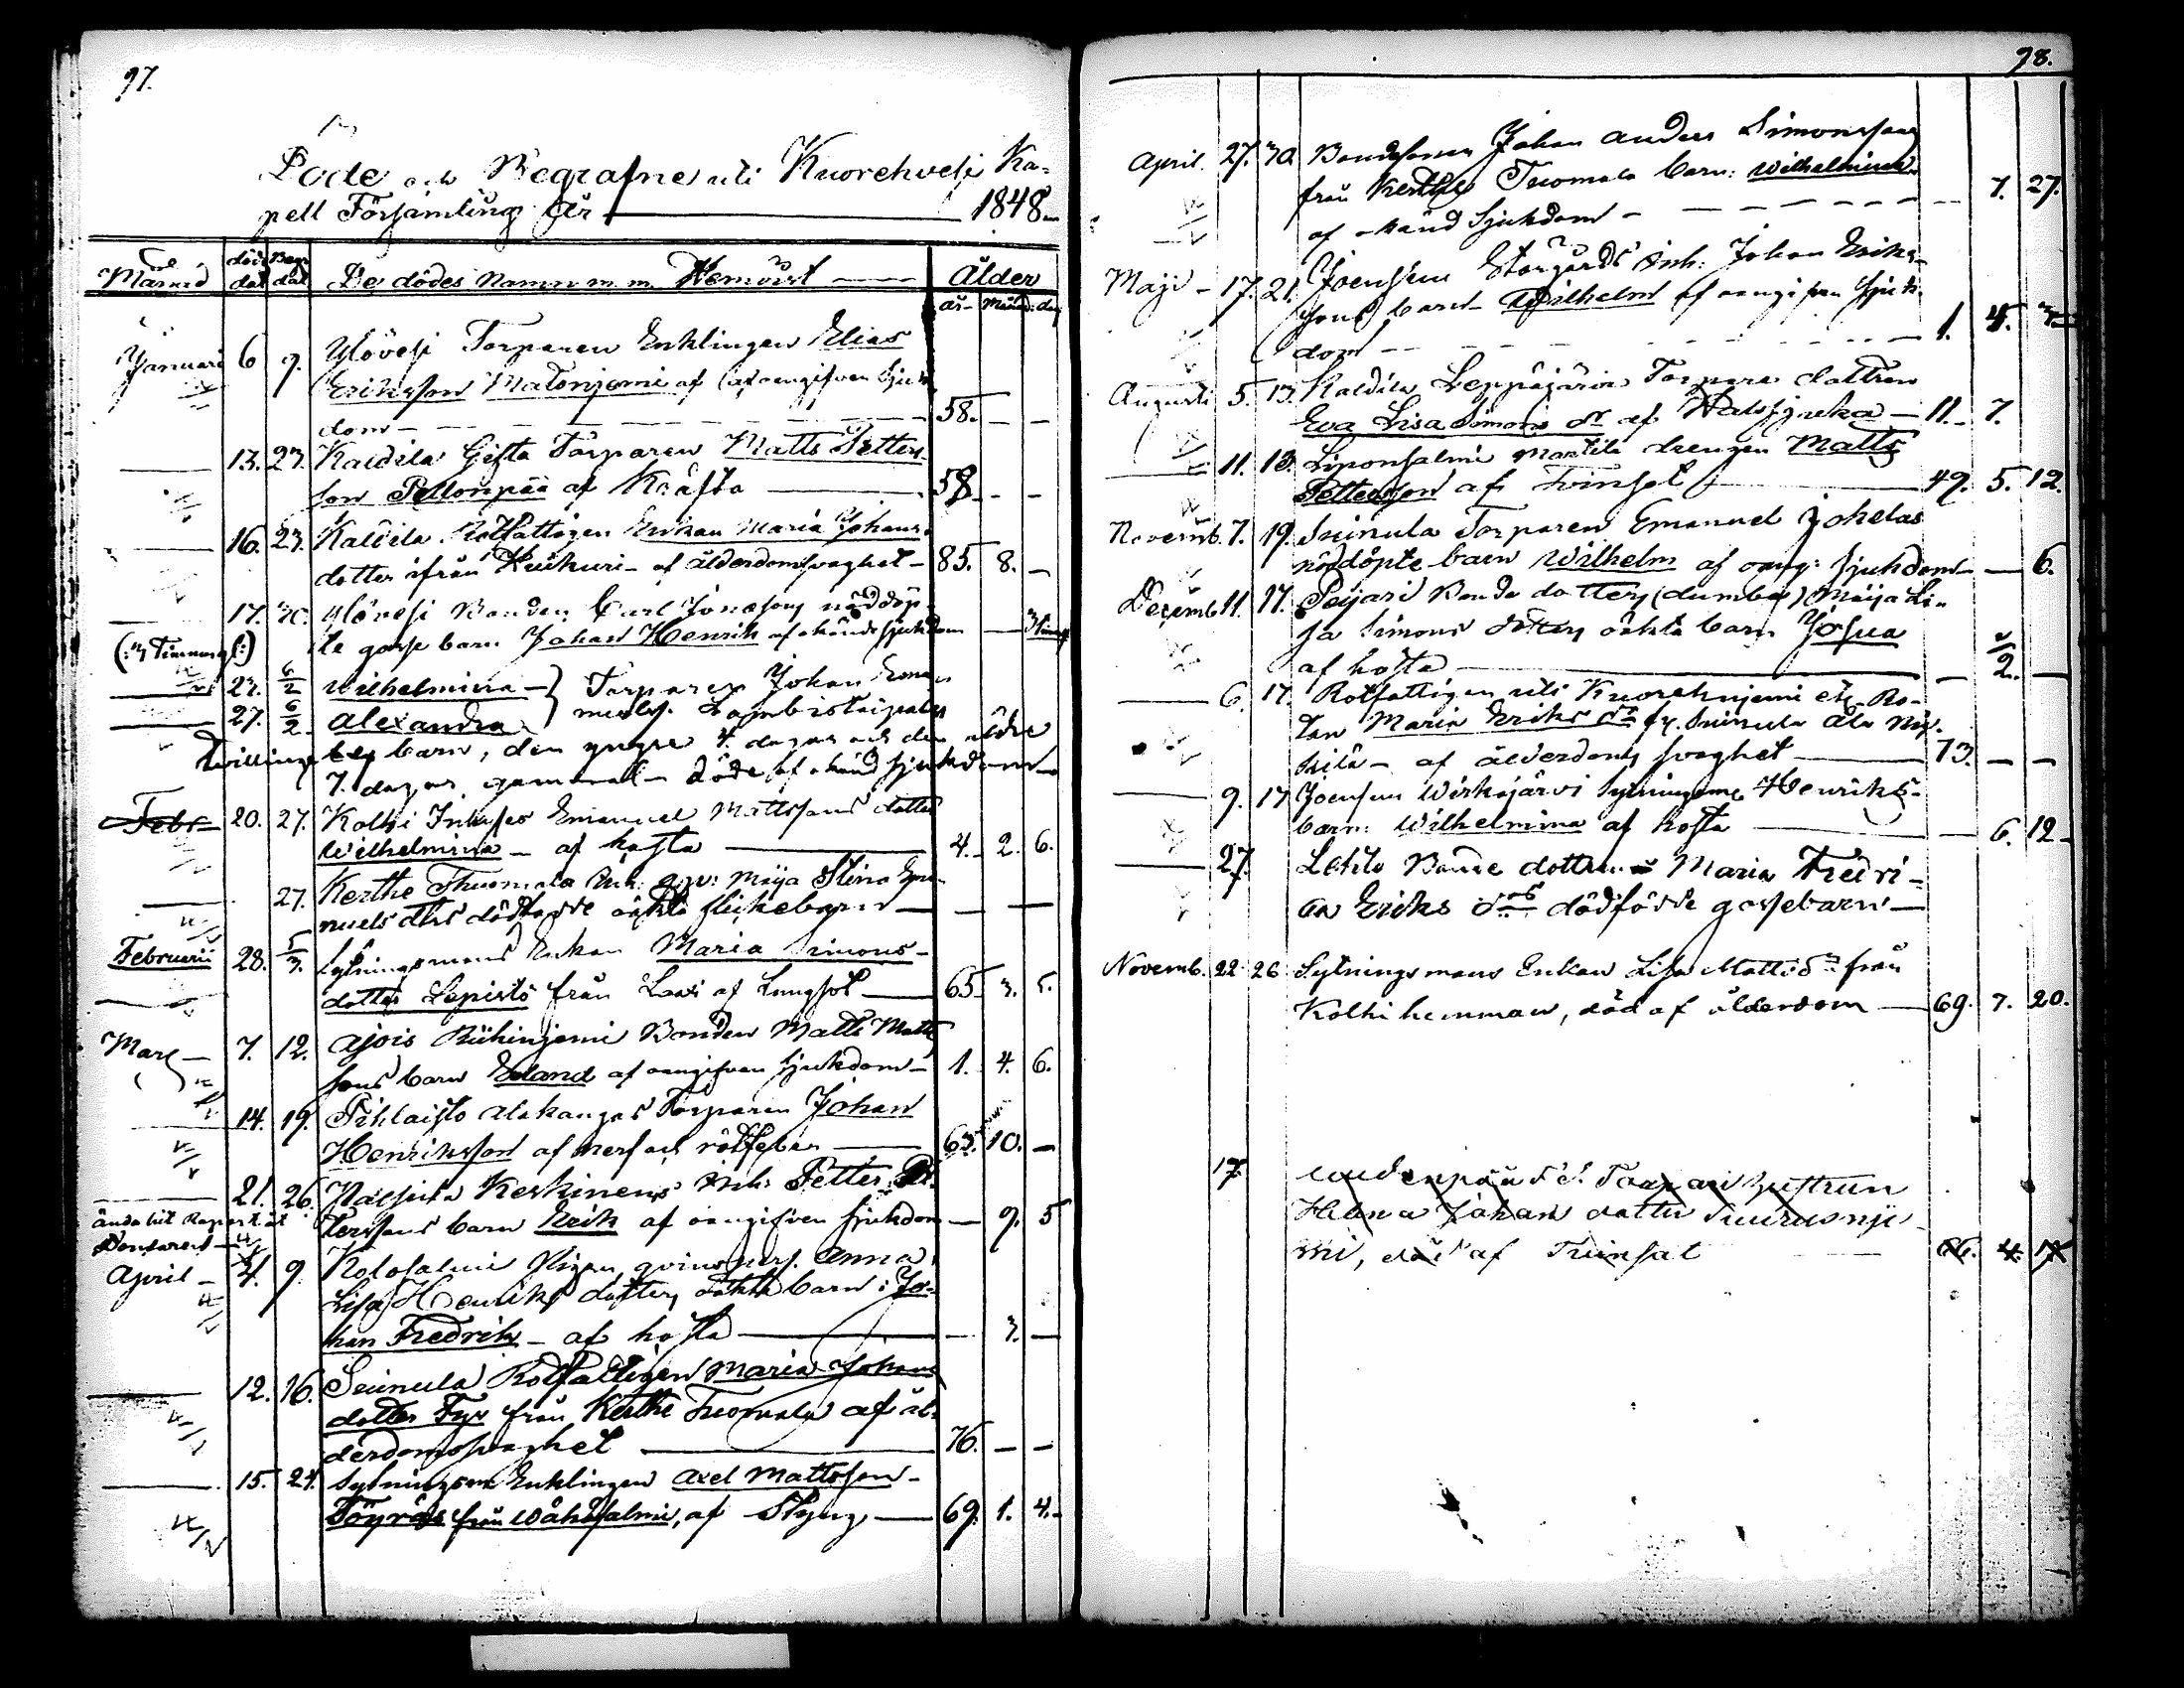 97.
Döde och Begrafne uti Kuorehvesi Ka-
pell Församling År 1848
Månad död dat Begr dat De dödes Namn m. m. Hemvist Ålder
år- Månad: dag
Januari 6 9. Ylövesi Torparen Enklingen Elias
Eriksson Matonjemi af oangifven Sjuk
dom - 58. - -
13. 23. Kaldila Gifta Torparen Matts Petters
son Pellonpää af Kräfta 58 - -
16. 23. Kaldila Rotfattigen Enkan Maria Johans
dotter ifrån Kuikuri - af ålderdomsvaghet - 85. 8. -
17. 30. Ylövesi Bonden Carl Jonasons nöddöp
te gosse barn Johan Henrik af okänd sjukdom
(:3 timmar gl:)
23. 6/2 Wilhelmina - Torparen Johan Ema
27. 6/2 Alexandra
Tvillinge barn, den yngre 4. dagar och den äldre
7. dagar gammal - döde af okänd sjukdom
Febr 20. 27. Kolhi Inhyses Emanuel Mattssons dotter
Wilhelmina - af hosta 4. 2. 6.
27. Kerthe Thuomala Inh: qvn: Maija Stina Ema
nuels dtrs dödfödde oäkta flickebarn - -
Februarii 28. 5/3. Sytningsmans Enkan Maria Simons-
dotter Lepistö från Lasi af Lungsot 65. 3. 5.
Mars - 7. 12. Ajois Riihinjemi Bonden Matts Matts
sons barn Erland af oangifven Sjukdom - 1. 4. 6.
14. 19. Pihlaisto Alakangas Torparen Johan
Henriksson af nerf och rötfeber 63. 10. -
21. 26. Keskinens Inh: Petter Pet
terssons barn Erik af oangifven sjukdom - 9. 5
ända hit Raport åt
April - 4. 9. Kolosalmi Pigan qvinspers. Anna
Lisa Henriks dotters oäkta barn: Jo-
han Fredrik - af hosta - 3. -
12. 16. Seinula Rotfattigen Maria Johans
dotter Fyr från Kerthe Tuomala af ål-
derdomsvaghet 76. - -
15. 24. Sytningsm Enklingen Axel Mattsson
Töyräs från Wåhäsalmi, af Styng 69. 1. 4.
98.
April 27. 30 Bondesonen Johan Anders Simonssons
från Kerthe Tuomala barn: Wilhelmina
af okänd Sjukdom - 7. 27.
Maji - 17. 21. Joensuu Storgårds Inh: Johan Eriks-
sons barn Wilhelm af oangifven sjuk-
dom - 1. 4.
Augusti 5. 13. Kaldila Leppäjärvi Torpare dottren
Eva Lisa Simons dr af Halssjuka - 11. 7.
11. 13. Liponsalmi Marttila drengen Matts
Pettersson af Tvinsot 49. 5. 12.
Novemb. 7. 19. Seinula Torparen Emanuel Johelas
nöddöpte barn Wilhelm af oang: sjukdom - 6.
Decemb 11. 17. Peijari Bonde dotters (dumbes) Maija Li-
sa Simons dotters oäkta barn Josua
af hosta - 2. -
6. 17. Rotfattigen uti Kuorehnjemi
Maria Eriks dr fr. Seinula Ala
kilä - af ålderdoms svaghet 73. - -
9. 17 Joensuu Wirkajärvi Sytningsm Henriks
barn: Wilhelmina af hosta - 6. 12 -
27. Lehto Bonde dottren Maria Fredri-
ka Eriks drs dödfödde gossebarn
Novemb. 22 26 Sytnings mans Enkan Lisa Matts dr från
Kolhi hemman, död af ålderdom 69. 7. 20.
17.
Helena Johans dotter
mi, död af Tvinsot 4.